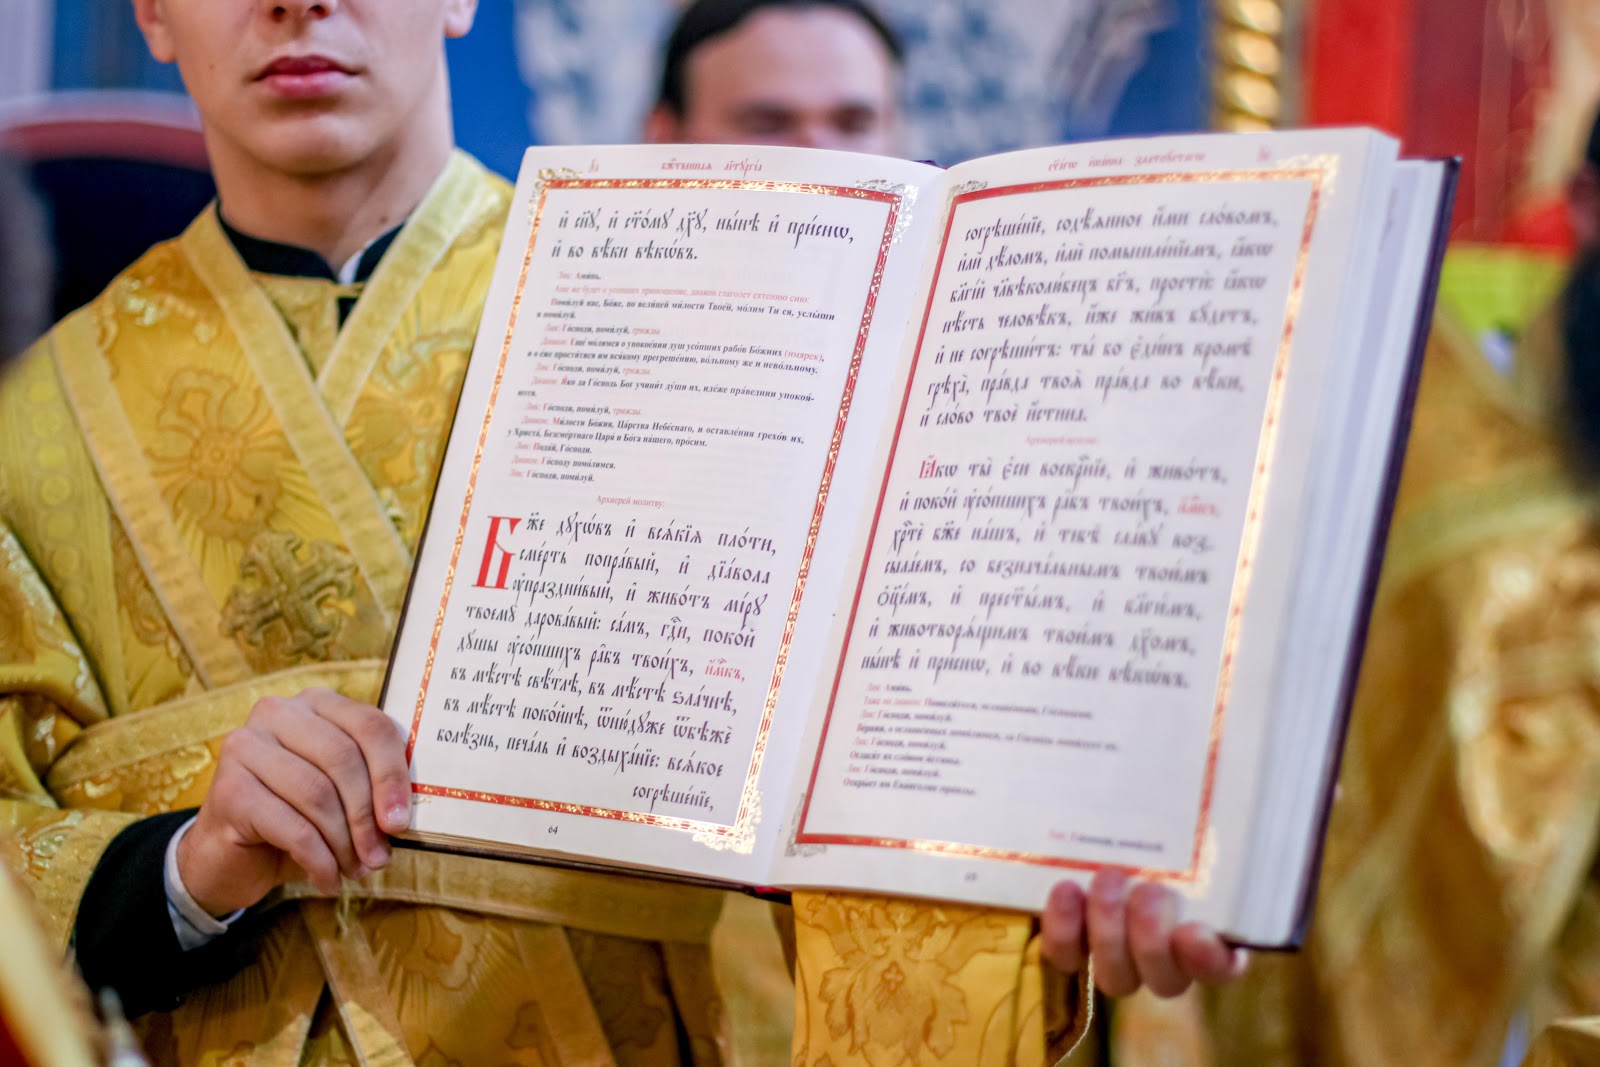 Бжⷭ҇твеннаѧ литꙋргі́а
и҆ сн҃ꙋ, и҆ ст҃о́мꙋ дх҃ꙋ, ны́нѣ и҆ при́снѡ,
и҆ во вѣ́ки вѣкѡ́въ.
Лик: Ами́нь.
Аще же будет о усопших приношение, диакон глаголет ектению сию:
Поми́луй нас, Бо́же, по вели́цей ми́лости Твое́й, мо́лим Ти ся, услы́ши
и поми́луй.
Лик: Го́споди, поми́луй, трижды.
Диакон: Еще́ мо́лимся о упокое́нии душ усо́пших рабо́в Бо́жиих (имярек),
и о е́же прости́тися им вся́кому прегреше́нию, во́льному же и нево́льному.
Лик: Го́споди, поми́луй, трижды.
Диакон: Я́ко да Госпо́дь Бог учини́т ду́ши их, иде́же пра́веднии упоко-
я́ются.
Лик: Го́споди, поми́луй, трижды.
Диакон: Ми́лости Бо́жия, Ца́рства Небе́снаго, и оставле́ния грехо́в их,
у Христа́, Безсме́ртнаго Царя́ и Бо́га на́шего, про́сим.
Лик: Пода́й, Го́споди.
Диакон: Го́споду помо́лимся.
Лик: Го́споди, поми́луй.
Архиерей молитву:
Бж҃е дꙋхѡ́въ и҆ всѧ́кїѧ пло́ти,
сме́рть попра́вый, и҆ дїа́вола
ᲂу҆праздни́вый, и҆ живо́тъ мі́рꙋ
твоемꙋ̀ дарова́вый: са́мъ, гдⷭ҇и, поко́й
дꙋ́шы ᲂу҆со́пшихъ ра̑бъ твои́хъ, и҆́мⷬ҇къ,
въ мѣ́стѣ свѣ́тлѣ, въ мѣ́стѣ ѕла́чнѣ,
въ мѣ́стѣ поко́йнѣ, ѿню́дꙋже ѿбѣжѐ
болѣ́знь, печа́ль и҆ воздыха́нїе: всѧ́кое
согрѣше́нїе,
64
ст҃а́гѡ і҆ѡа́нна златоꙋ́стагѡ
согрѣше́нїе, содѣ́ѧнное и҆́ми сло́вомъ,
и҆лѝ дѣ́ломъ, и҆лѝ помышле́нїемъ, ꙗ҆́кѡ
бл҃гі́й чл҃вѣколю́бецъ бг҃ъ, простѝ: ꙗ҆́кѡ
нѣ́сть человѣ́къ, и҆́же жи́въ бꙋ́детъ,
и҆ не согрѣши́тъ: ты́ бо є҆ди́нъ кромѣ̀
грѣха̀, пра́вда твоѧ̀ пра́вда во вѣ́ки,
и҆ сло́во твоѐ и҆́стина.
Архиерей возглас:
Ꙗ҆́кѡ ты̀ є҆сѝ воскрⷭ҇нїе, и҆ живо́тъ,
и҆ поко́й ᲂу҆со́пшихъ ра̑бъ твои́хъ, и҆́мⷬ҇къ,
хрⷭ҇тѐ бж҃е на́шъ, и҆ тебѣ̀ сла́вꙋ воз-
сыла́емъ, со безнача́льнымъ твои́мъ
ѻ҆ц҃е́мъ, и҆ прест҃ы́мъ, и҆ бл҃ги́мъ,
и҆ животворѧ́щимъ твои́мъ дх҃омъ,
ны́нѣ и҆ при́снѡ, и҆ во вѣ́ки вѣкѡ́въ.
Лик: Ами́нь.
Помоли́теся, оглаше́ннии, Го́сподеви.
Лик: Го́споди, поми́луй.
Ве́рнии, о оглаше́нных помо́лимся, да Госпо́дь поми́лует их.
Лик: Го́споди, поми́луй.
Огласи́т их сло́вом и́стины.
Лик: Го́споди, поми́луй.
Откры́ет им Ева́нгелие пра́вды.
Лик: Го́споди, поми́луй.